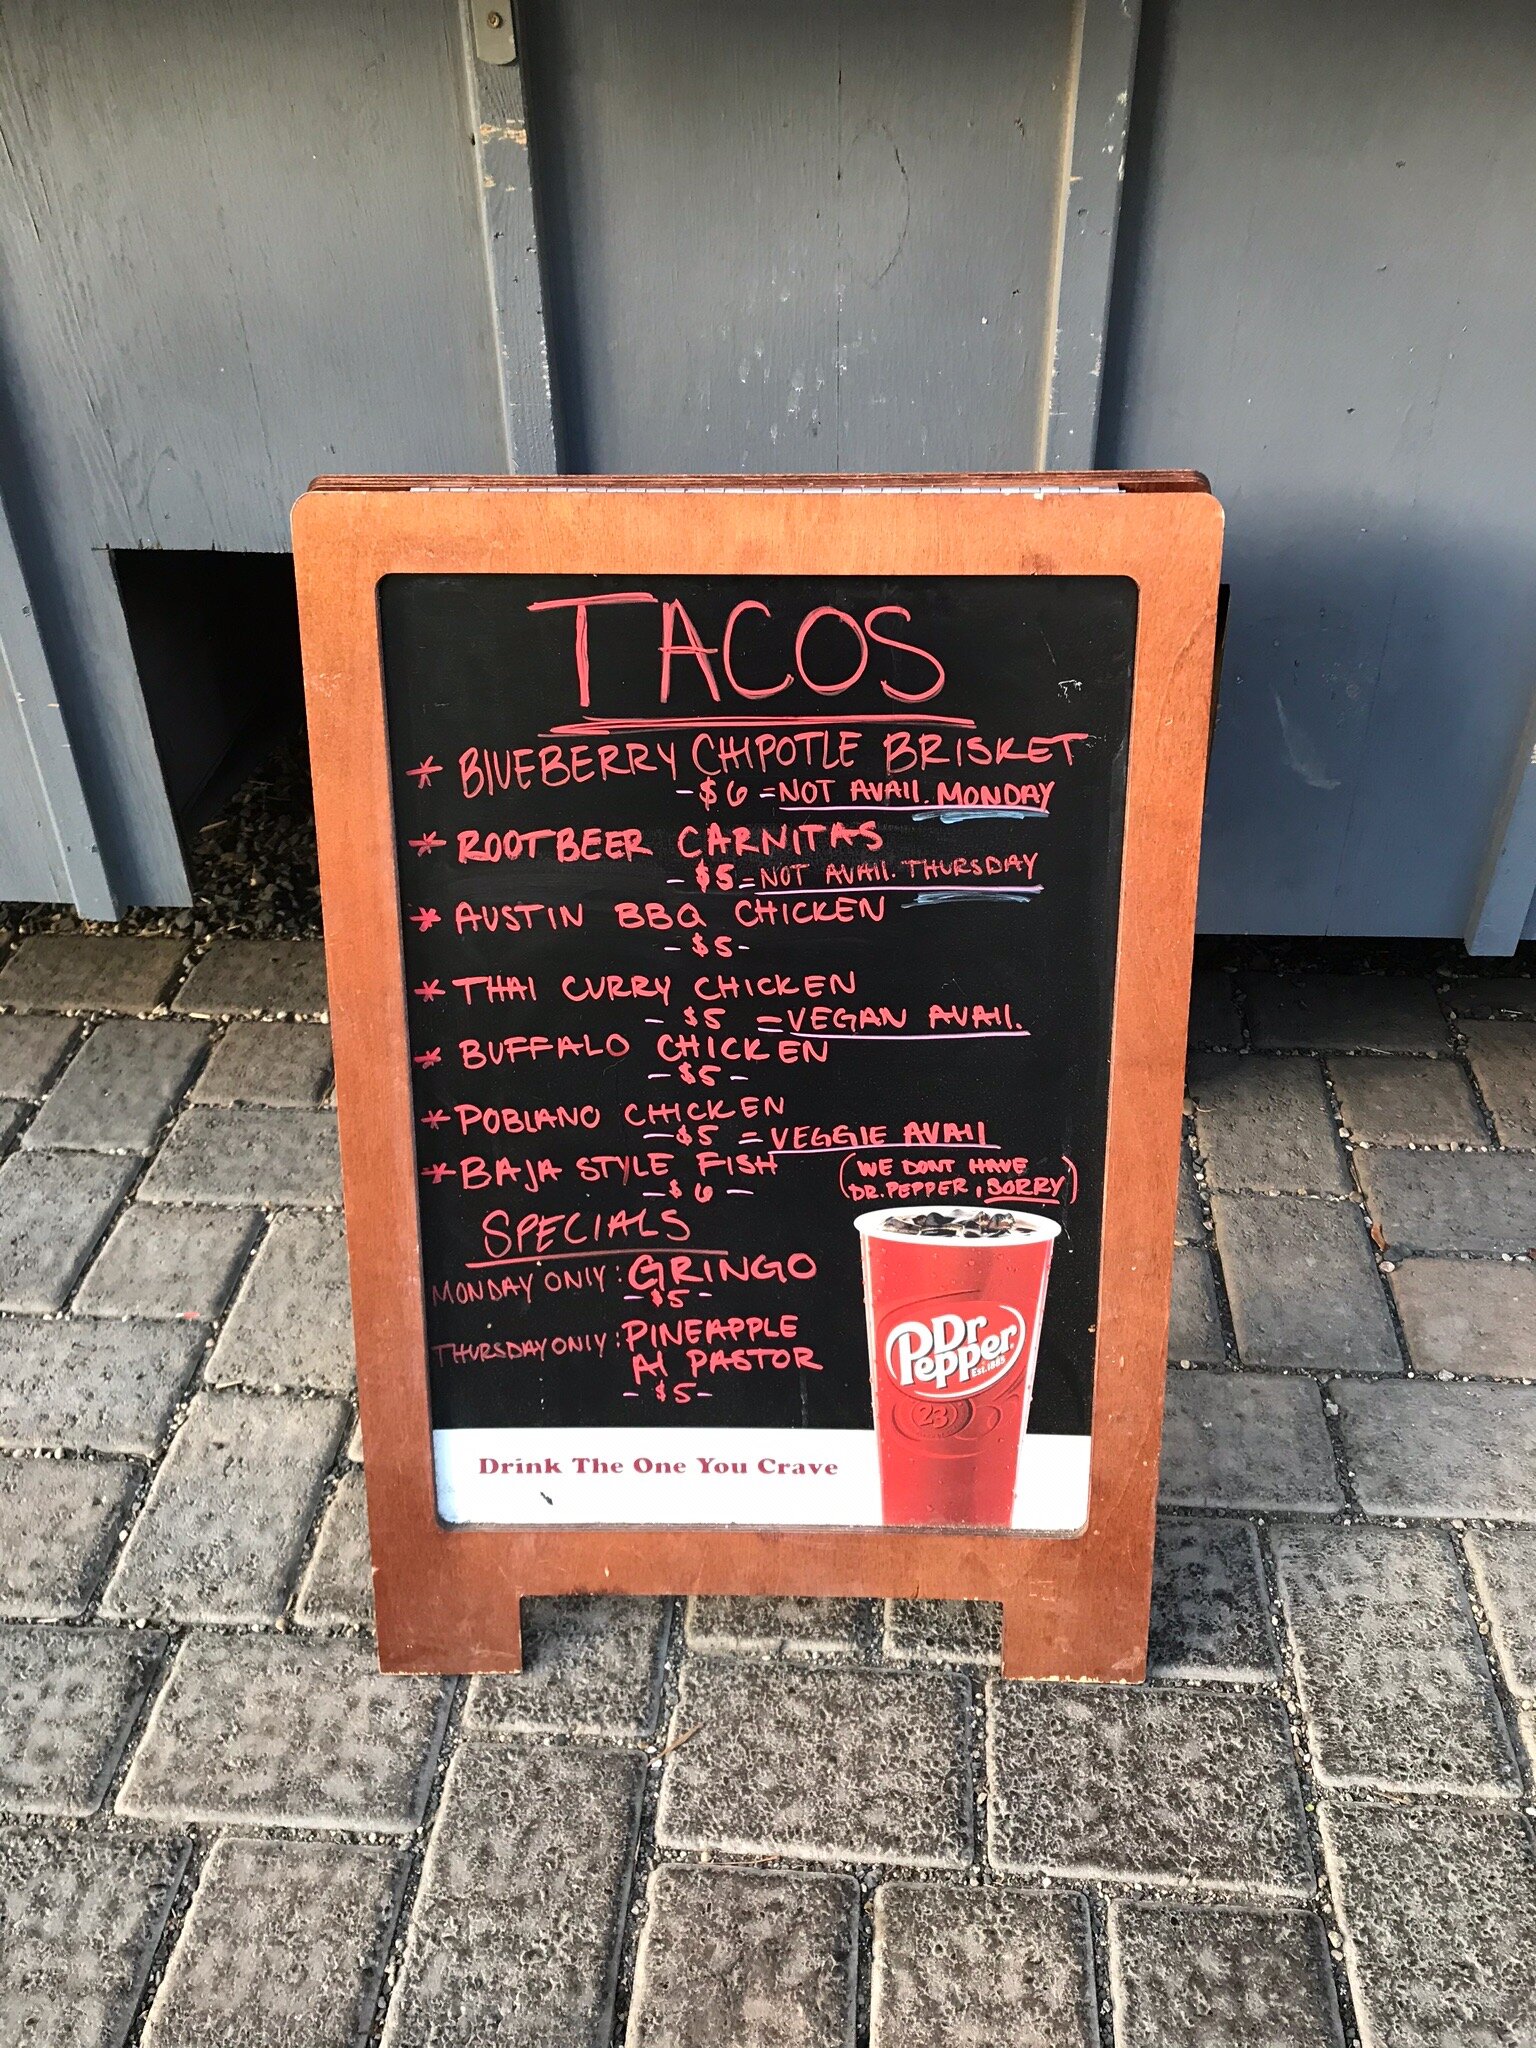 TACOS
* BLUEBERRY CHIPOTLE BRISKET
- $6 = NOT AVAIL. MONDAY
* ROOTBEER CARNITAS
- $5 = NOT AVAIL. THURSDAY
* AUSTIN BBQ CHICKEN
- $5 -
* THAI CURRY CHICKEN
- $5 = VEGAN AVAIL.
* BUFFALO CHICKEN
- $5 -
* POBLANO CHICKEN
- $5 = VEGGIE AVAIL
* BAJA STYLE FISH
- $6 -
(WE DONT HAVE
DR. PEPPER, SORRY)
SPECIALS
MONDAY ONLY: GRINGO
- $5 -
THURSDAY ONLY: PINEAPPLE
Al PASTOR
- $5 -
Dr
Pepper
EST. 1885
23
Drink The One You Crave